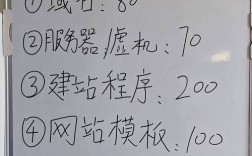 ①域名：80
②服务器/虚机：70
③建站程序：200
④网站模板：100